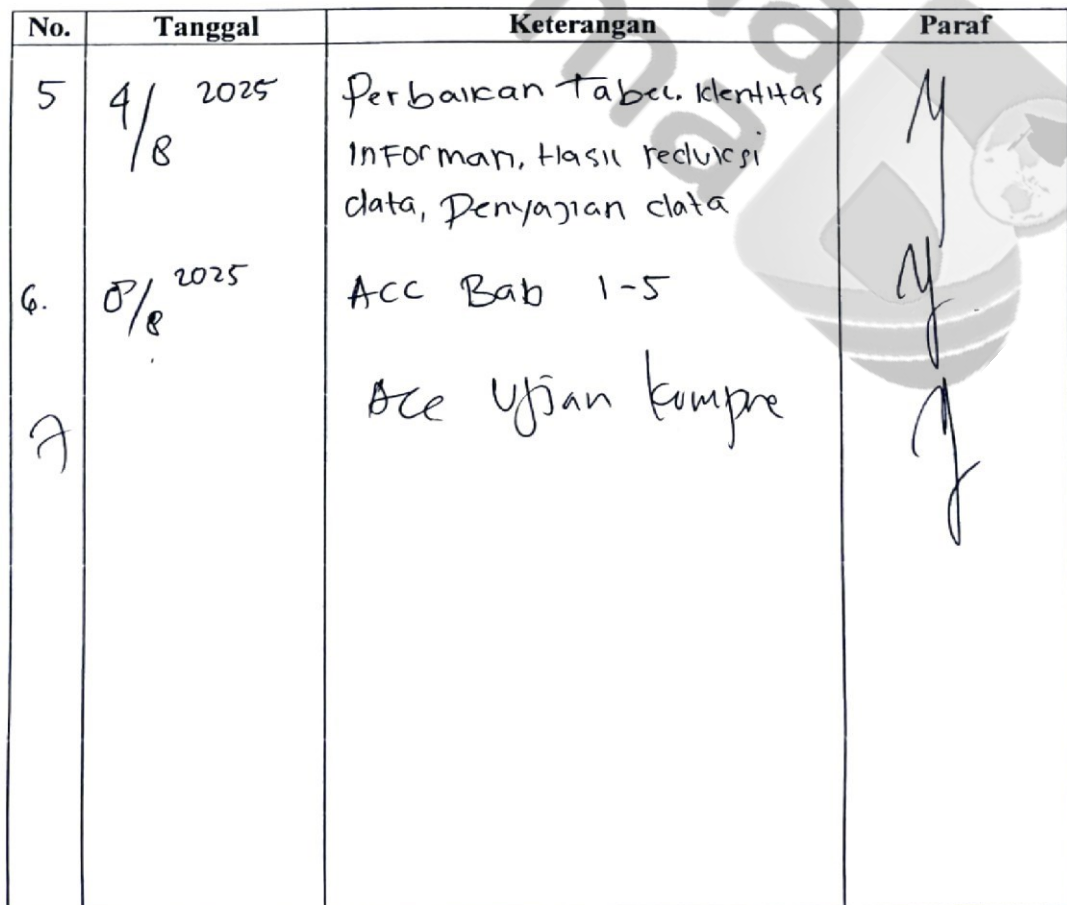 No. Tanggal Keterangan Paraf
5 4/8 2025 Perbaikan Tabel. Identitas
Informan, Hasil reduksi
data, Penyajian data
6. 8/8 2025 ACC Bab 1-5
7 Acc Ujian kompre